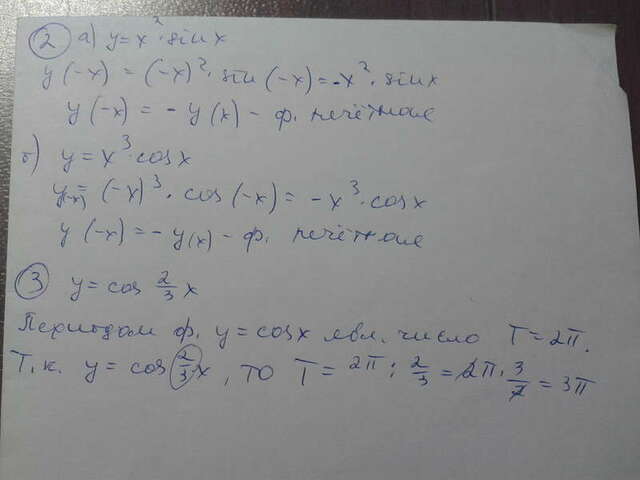 ② а) y = x² · sin x
y(-x) = (-x)² · sin(-x) = -x² · sin x
y(-x) = - y(x) - ф. нечётная
б) y = x³ · cos x
y(-x) = (-x)³ · cos(-x) = -x³ · cos x
y(-x) = - y(x) - ф. нечётная
③ y = cos 2/3 x
Периодом ф. y = cos x явл. число T = 2π.
Т.к. y = cos 2/3 x, то T = 2π : 2/3 = 2π · 3/2 = 3π